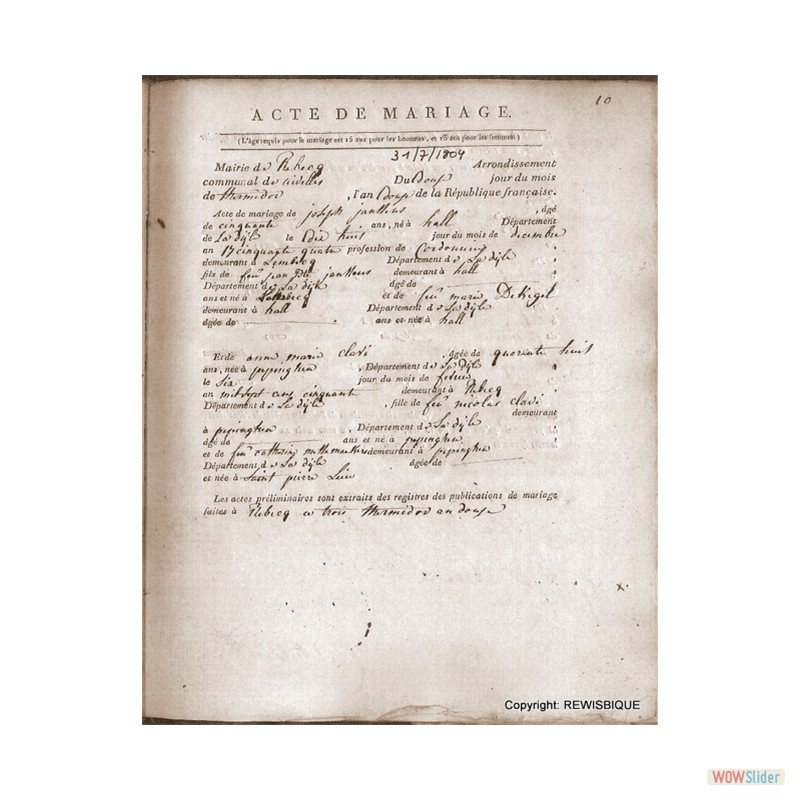 10
ACTE DE MARIAGE.
(L'âge requis pour le mariage est 15 ans pour les hommes, et 15 ans pour les femmes)
31/7/1804
Mairie de Rebecq Arrondissement
communal de nivelles Du Douze jour du mois
de thermidor , l'an Douze de la République française.
Acte de mariage de joseph janttens , âgé
de cinquante ans, né à hall Département
de La dijle le Dix huit jour du mois de decembre
an 17 cinquante quatre profession de Cordonnier
demeurant à Lembecq Département de La dijle
fils de feu jean Bte janttens demeurant à hall
Département de La dijle âgé de
ans et né à et de feu marie DeKegel
demeurant à hall Département de La dijle
âgée de ans et née à hall
Et de anne marie clavé , âgée de quarante huit
ans, née à pepinghen , Département de La dijle
le six jour du mois de fevrier
an mil sept cens cinquante demeurant à Rebecq
Département de La dijle , fille de feu nicolas clavé
demeurant
à pepinghen , Département de La dijle
âgé de ans et né à pepinghen
et de feu catherine demeurant à pepinghen
Département de La dijle âgée de
et née à Saint pierre
Les actes préliminaires sont extraits des registres des publications de mariage
faites à Rebecq ce trois thermidor an douze
Copyright: REWISBIQUE
WOWSlider